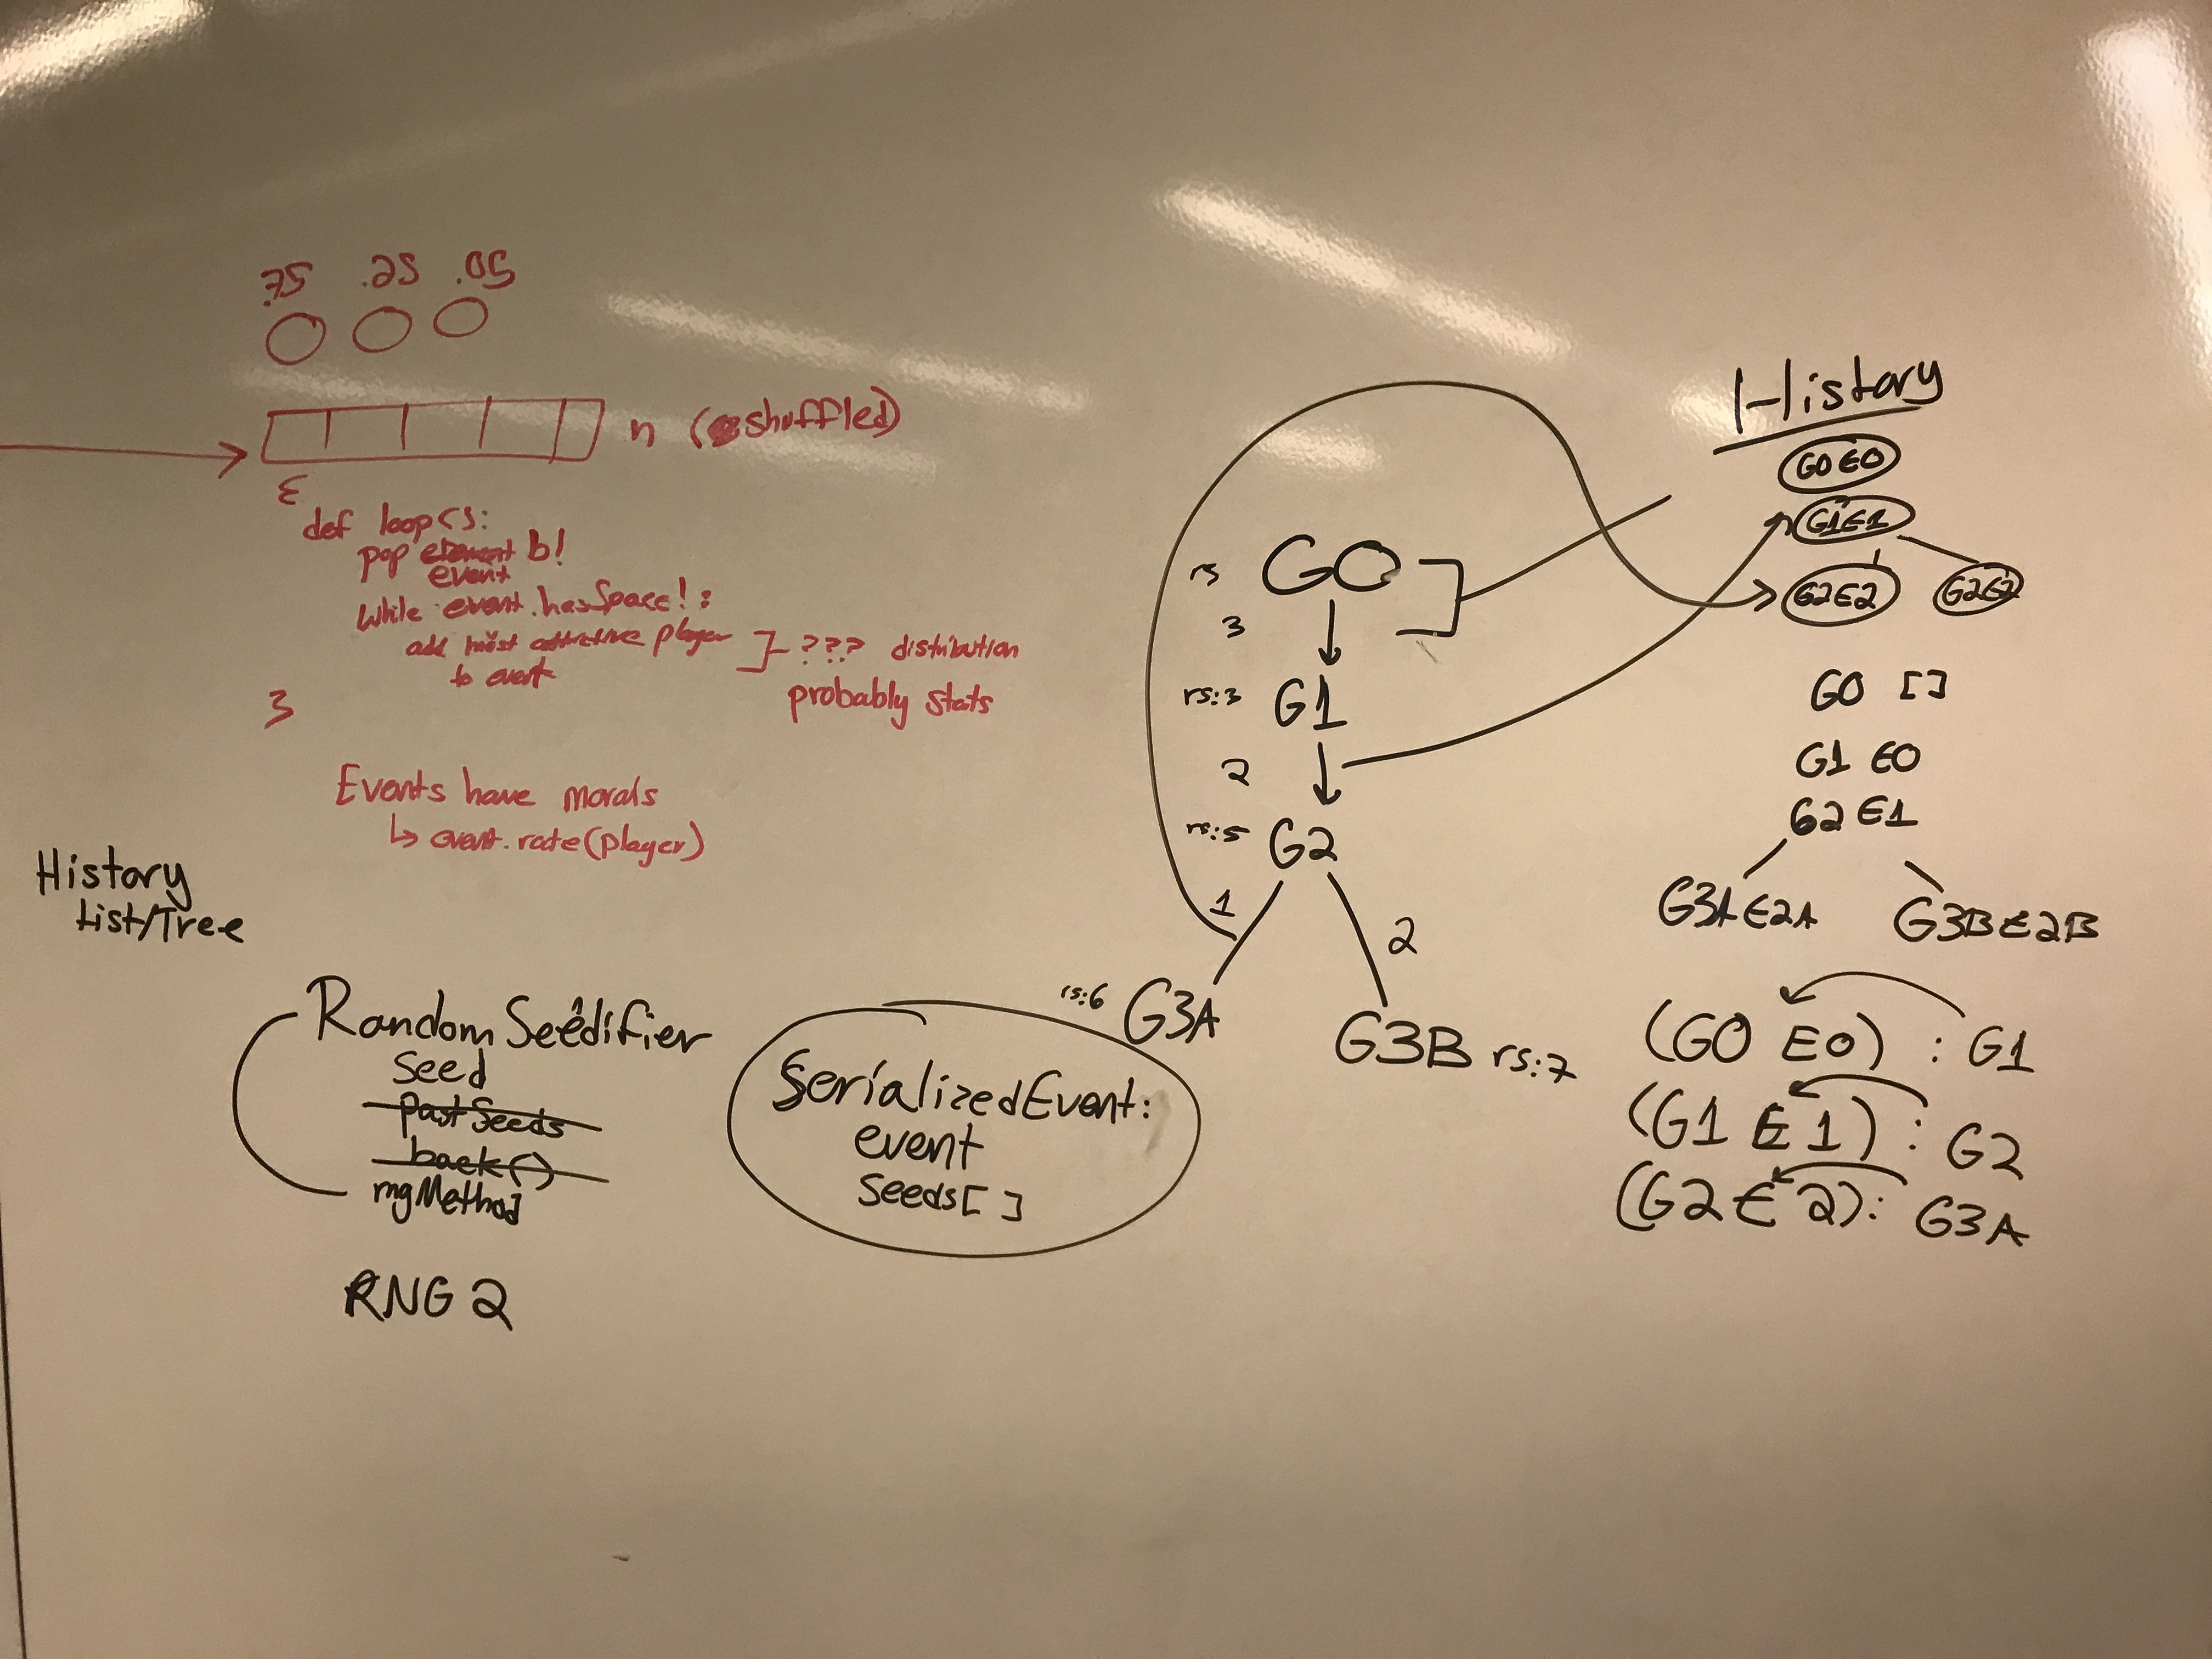 .75 .25 .05
n (shuffled)
def loop<s:
pop element b!
event
while event.hasSpace! :
add most attractive player
to event
??? distribution
probably stats
3
Events have morals
↳ event.rate(player)
History
List/Tree
RandomSeedifier
Seed
pastSeeds
back()
rngMethod
RNG 2
SerializedEvent:
event
Seeds[ ]
rs G0
3
rs:3 G1
2
rs:5 G2
1 2
rs:6 G3A
G3B rs:7
History
G0E0
G1E1
G2E2 G2E2
G0 []
G1 E0
G2 E1
G3A E2A G3B E2B
(G0 E0) : G1
(G1 E1) : G2
(G2 E2): G3A